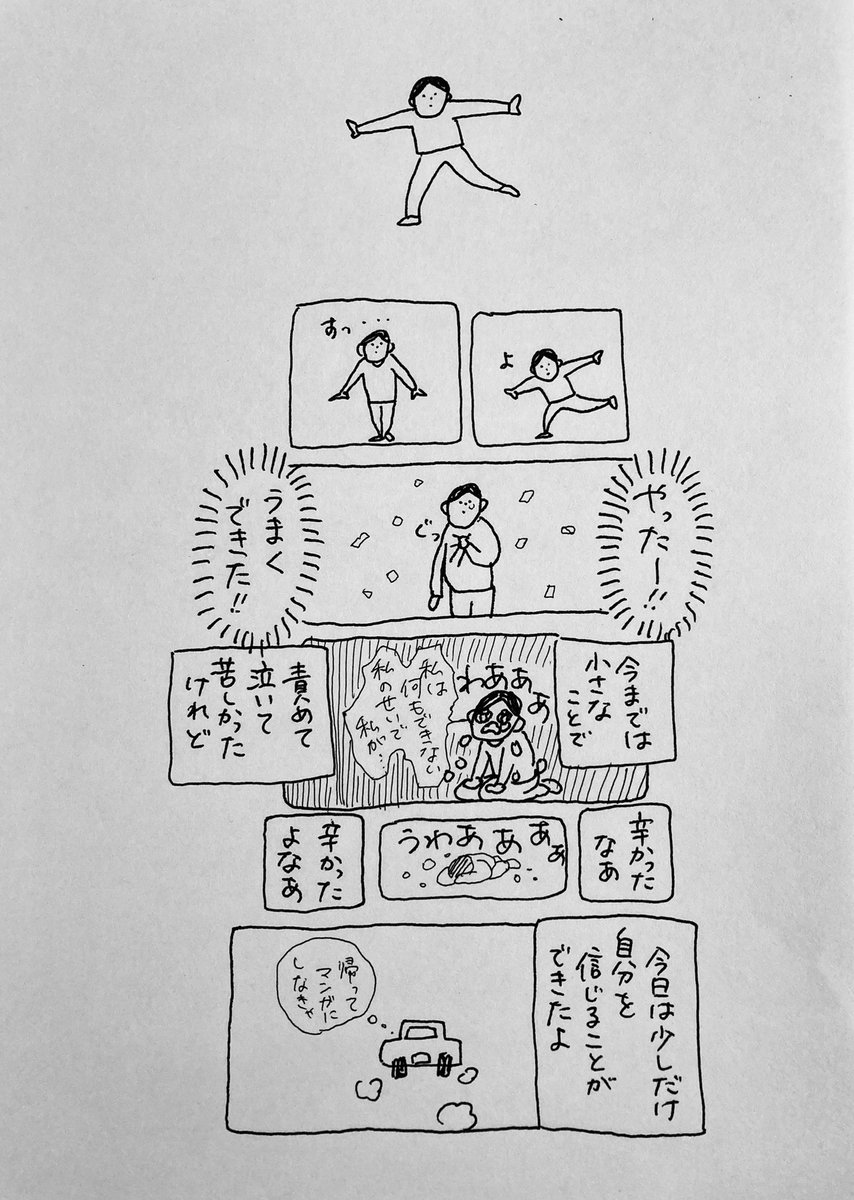 よ
すっ・・・
やったー!!
ぐっ
うまく
できた!!
今までは
小さな
ことで
わあああ
私は
何もできない
私のせいで
私が…
責めて
泣いて
苦しかった
けれど
辛かった
なあ
うわあああぁ
辛かった
よなあ
今日は少しだけ
自分を
信じることが
できたよ
帰って
マンガに
しなきゃ